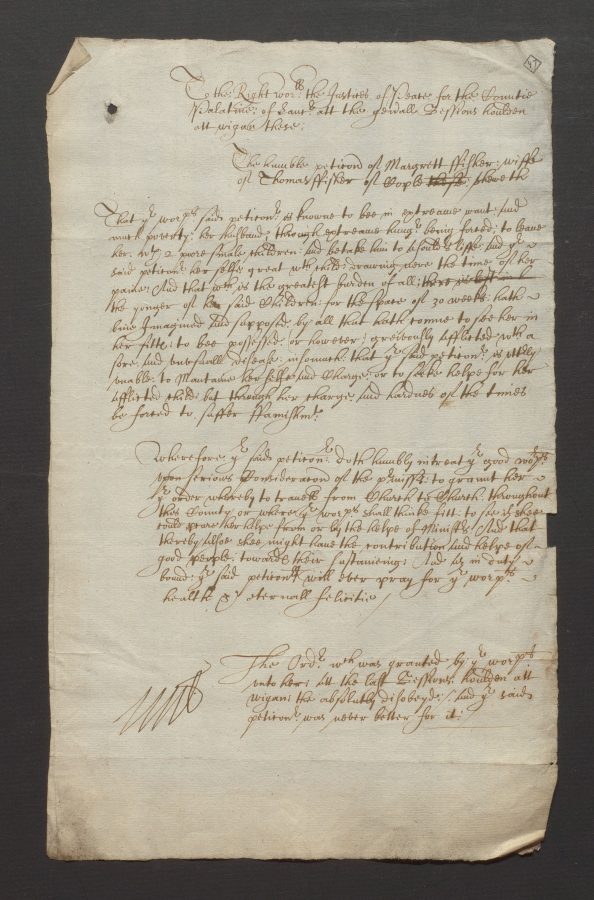 To the Right wor:lls the Justices of Peace for the Countie
Palatine: of Lanc: att the gen'all Sessions houlden
att wigan there:
The humble peticon of Margrett ffisher: wiffe
of Thomas ffisher of sheweth
That yr worps said peticonr: is knowne to bee in extreame want: and
much poverty: her husband: through extreame hung'r: being forced: to leave
her: wth 2 more smale children: and betake him to a and yr
said peticonr: her selfe great wth child: drawing nere the time of her
paine: And that wch is the greatest burden of all:
the yonger of her said Children: for the space of 20 weekes: hath
bine Imagined and supposed: by all that hath comme to see her in
her fitts: to bee possessed: or however: greivously afflicted wth a
sore: and unusuall disease: insomuch: that yr said peticonr: is
unable: to Mantaine her selfe and Charge: or to seeke helpe for her
afflicted child but through her charge: and hardnes of the times
be forced to: suffer ffamishmt:
Wherefore: yr said peticonr: doth humbly intreat yr good worps
upon serious Consideracon of the p'misses: to graunt her
yr order whereby to travell from Church to Church throughout
this County or where yr worps shall thinke fitt: to see if shee
could procure her helpe from or by the helpe of Ministrs: And that
thereby alsoe shee might have the contribution and helpe of
good people: towards their sustaineing: And as in duty
bound: yr said peticonr will ever pray for yr worps
health & eternall felicitie
The Ordr: wch was granted by yr worps
unto her: att the last Sessions houlden att
wigan: the absolutly disobeyd: and yr said
peticonr: was never better for it: